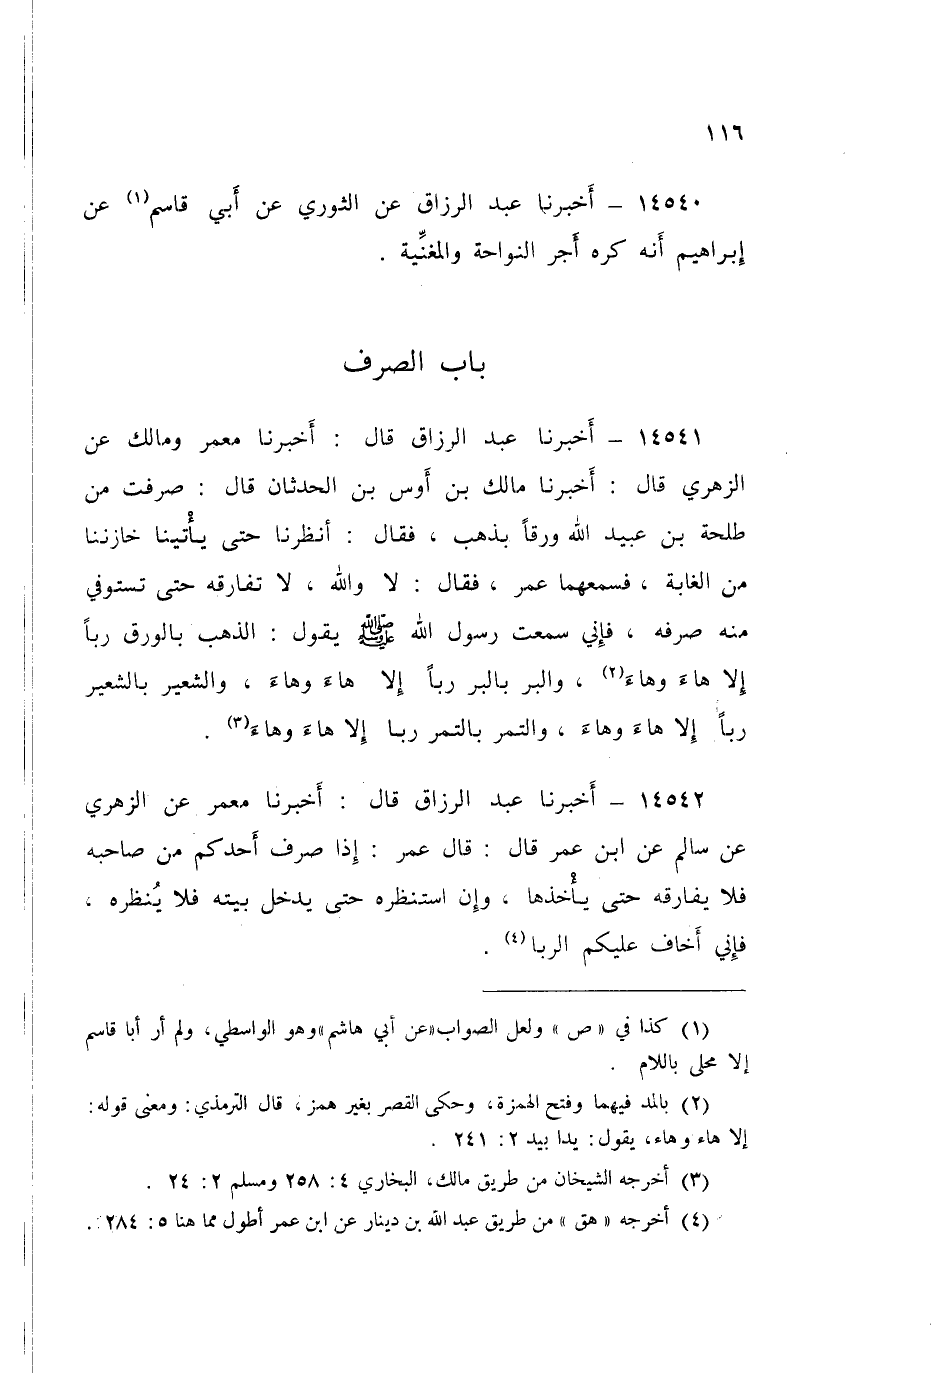 ١١٦
١٤٥٤٠ – أَخبرنا عبد الرزاق عن الثوري عن أَبي قاسم(١) عن
إِبراهيم أَنه كره أَجر النواحة والمغنِّية .
باب الصرف
١٤٥٤١ – أَخبرنا عبد الرزاق قال : أَخبرنا معمر ومالك عن
الزهري قال : أَخبرنا مالك بن أَوس بن الحدثان قال : صرفت من
طلحة بن عبيد الله ورقاً بذهب ، فقال : أنظرنا حتى يأْتينا خازننا
من الغابة ، فسمعهما عمر ، فقال : لا والله ، لا تفارقه حتى تستوفي
منه صرفه ، فإني سمعت رسول الله ﷺ يقول : الذهب بالورق رباً
إِلا هاءَ وهاءَ(٢) ، والبر بالبر رباً إِلا هاءَ وهاءَ ، والشعير بالشعير
رباً إِلا هاءَ وهاءَ ، والتمر بالتمر ربا إِلا هاءَ وهاءَ(٣) .
١٤٥٤٢ – أَخبرنا عبد الرزاق قال : أَخبرنا معمر عن الزهري
عن سالم عن ابن عمر قال : قال عمر : إِذا صرف أَحدكم من صاحبه
فلا يفارقه حتى يأْخذها ، وإِن استنظره حتى يدخل بيته فلا يُنظره ،
فإِني أَخاف عليكم الربا(٤) .
(١) كذا في « ص » ولعل الصواب«عن أبي هاشم»وهو الواسطي، ولم أر أبا قاسم
إلا محلى باللام .
(٢) بالمد فيهما وفتح الهمزة، وحكى القصر بغير همز، قال الترمذي: ومعنى قوله:
إلا هاء وهاء، يقول: يدا بيد ٢: ٢٤١ .
(٣) أخرجه الشيخان من طريق مالك، البخاري ٤: ٢٥٨ ومسلم ٢: ٢٤ .
(٤) أخرجه « هق » من طريق عبد الله بن دينار عن ابن عمر أطول مما هنا ٥: ٢٨٤ .